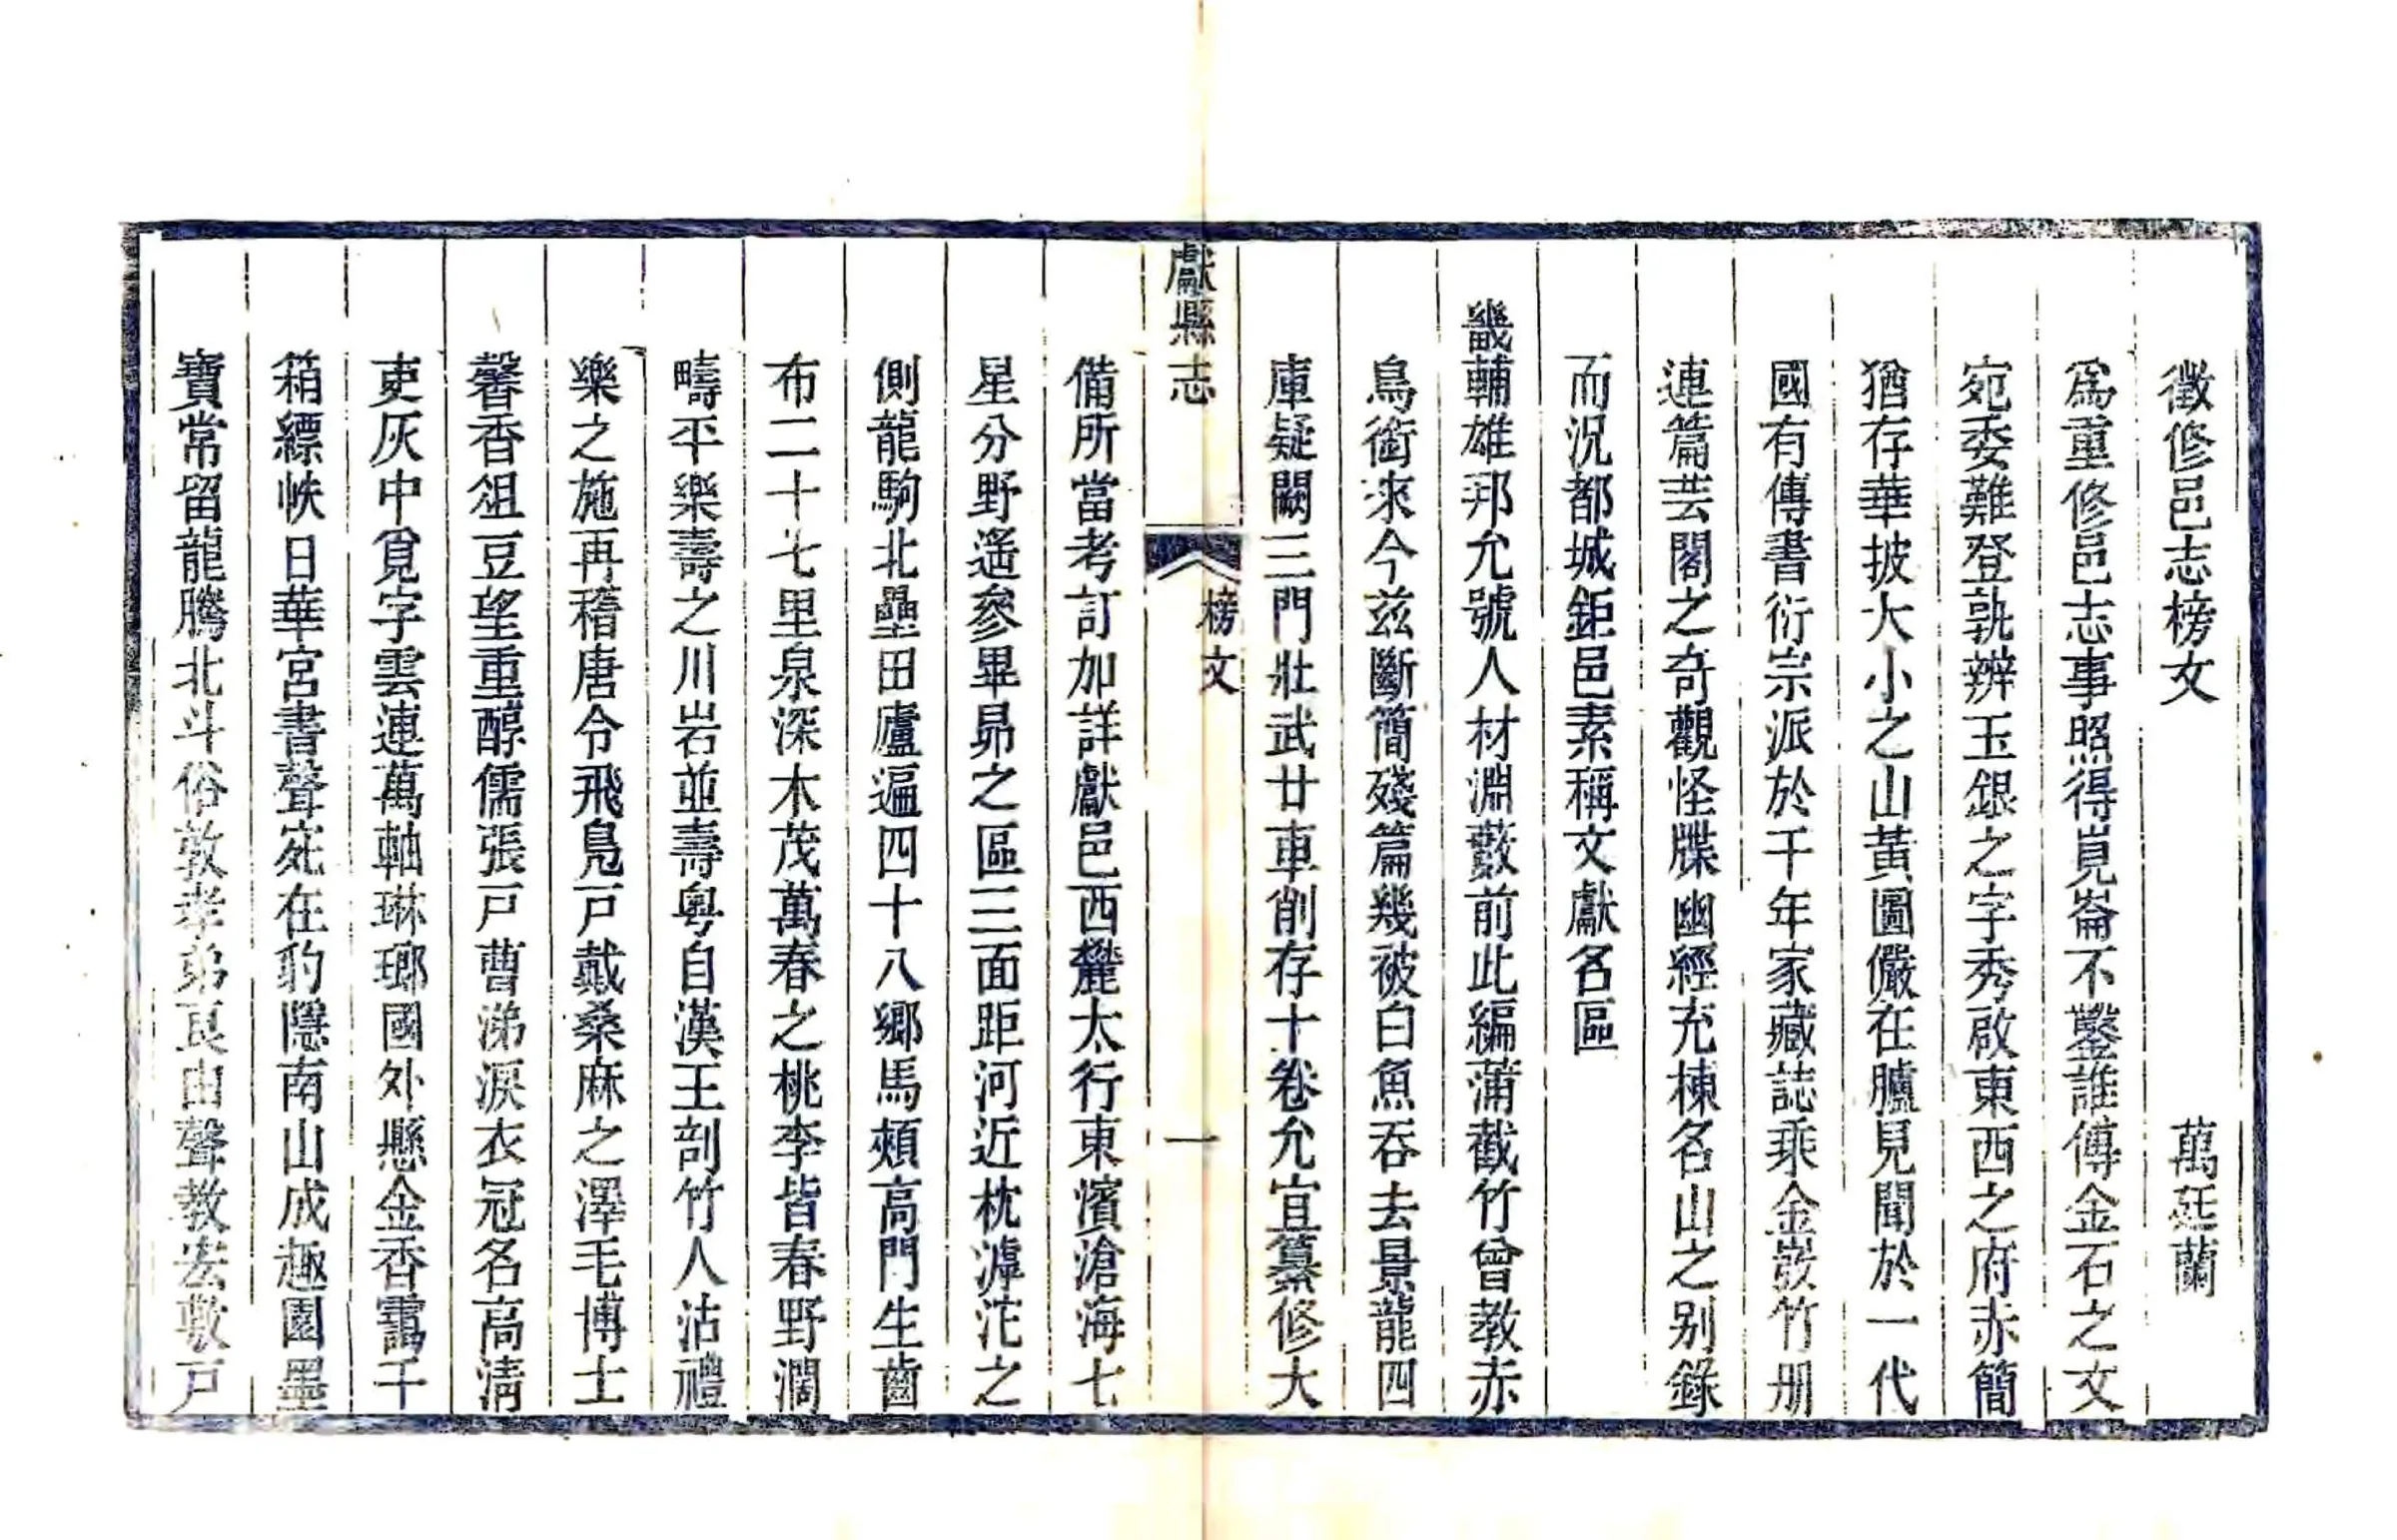 徵修邑志榜文 萬廷蘭
為重修邑志事照得崑崙不鑿誰傳金石之文
宛委難登孰辨玉銀之字秀啟東西之府赤簡
猶存華披大小之山黃圖儼在臚見聞於一代
國有傳書衍宗派於千年家藏誌乘金嵌竹册
連篇芸閣之奇觀怪牒幽經充棟名山之别錄
而況都城鉅邑素稱文獻名區
畿輔雄邦允號人材淵藪前此編蒲截竹曾教赤
鳥銜來今兹斷簡殘篇幾被白魚吞去景龍四
庫疑闕三門壯武廿車削存十卷允宜纂修大
獻縣志 榜文 一
備所當考訂加詳獻邑西麓太行東濱滄海七
星分野遥參畢昴之區三面距河近枕滹沱之
側龍駒北壘田廬遍四十八鄉馬頰高門生齒
布二十七里泉深木茂萬春之桃李皆春野濶
疇平樂壽之川岩並壽粵自漢王剖竹人沾禮
樂之施再稽唐令飛鳧戸戴桑麻之澤毛博士
馨香俎豆望重醇儒張戸曹涕淚衣冠名高淸
吏灰中覓字雲連萬軸琳瑯國外懸金香靄千
箱縹帙日華宮書聲宛在豹隱南山成趣園墨
寶常留龍騰北斗俗敦孝弟良由聲教宏敷戸